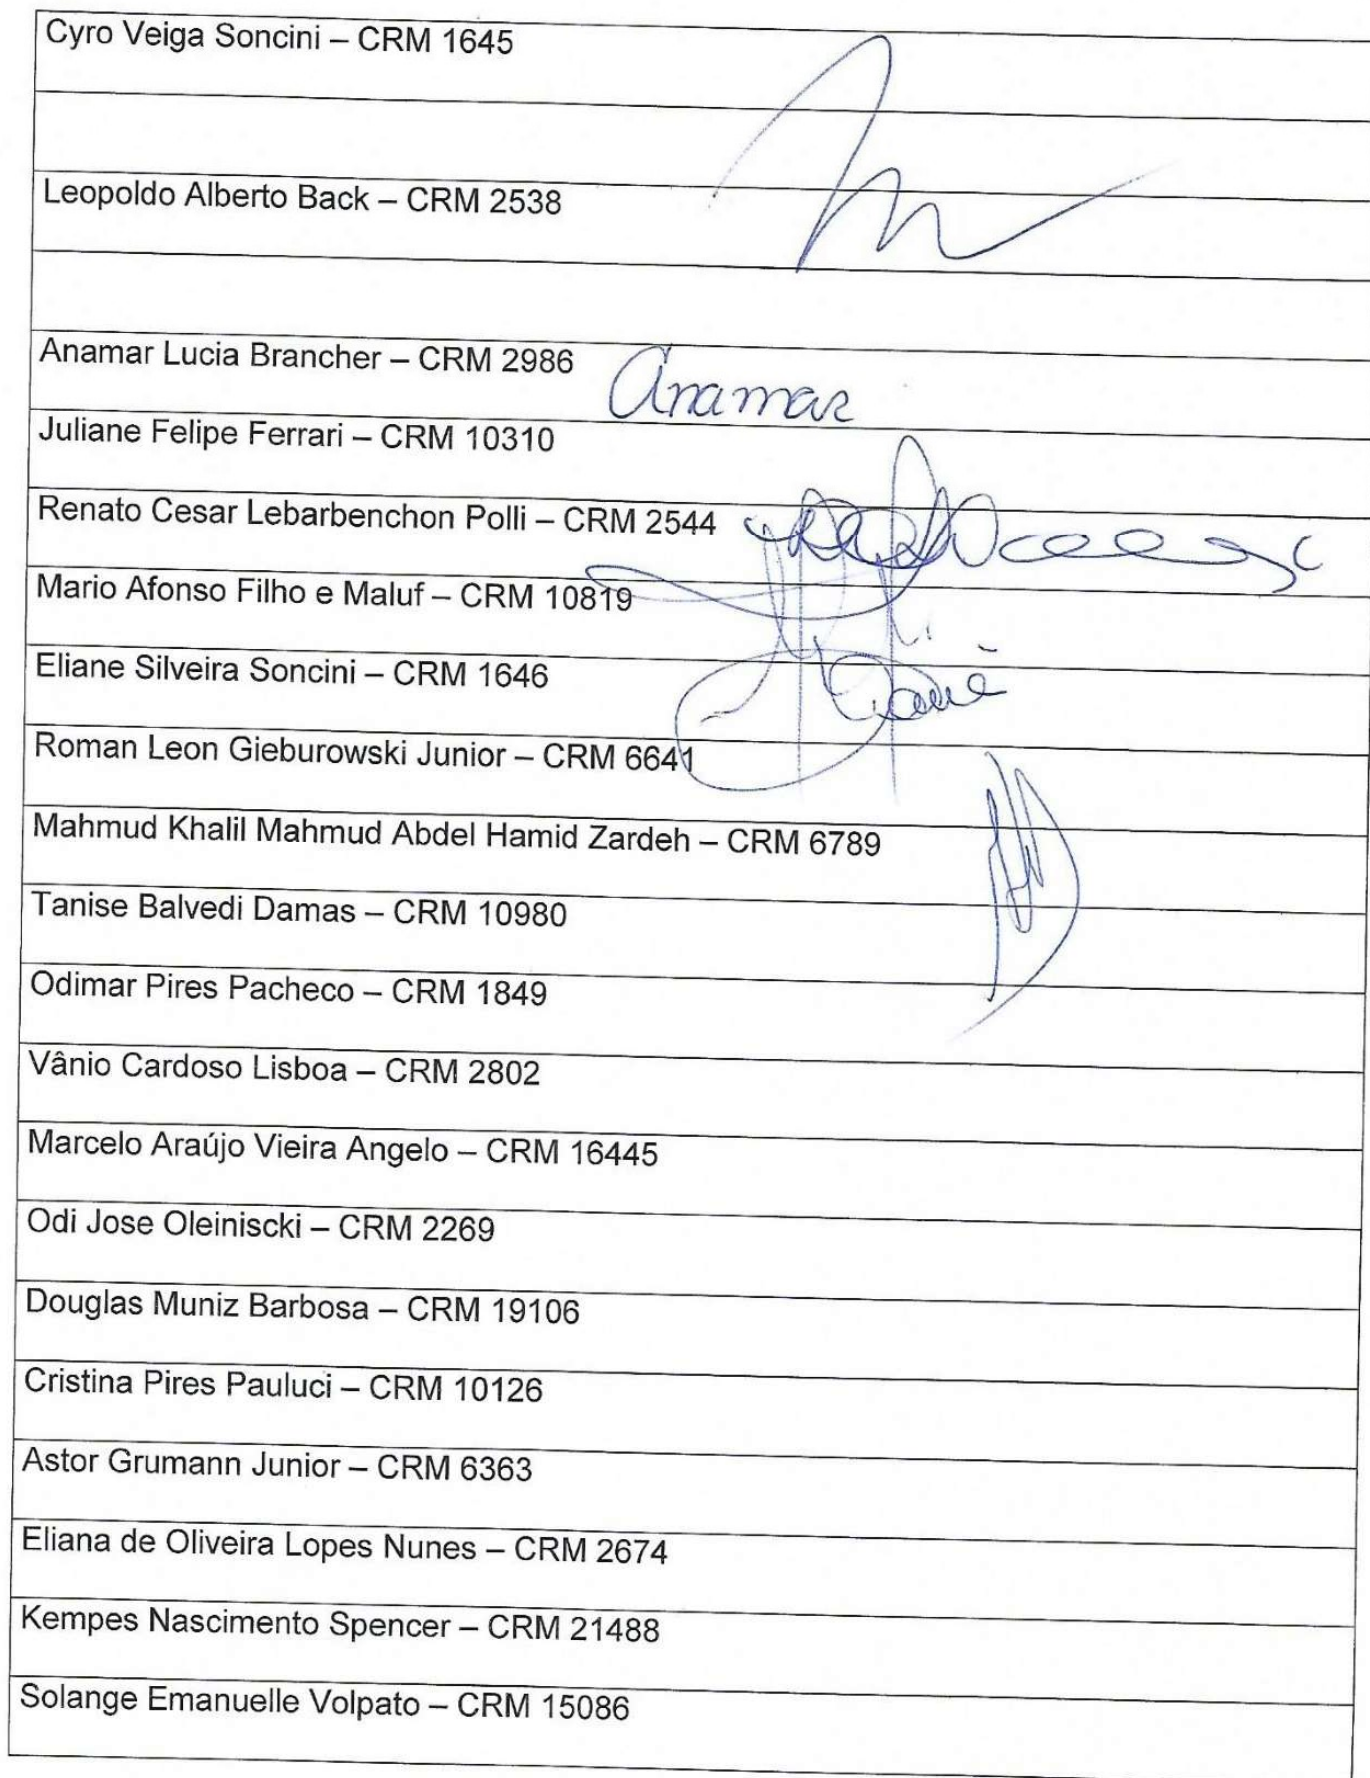 Cyro Veiga Soncini – CRM 1645
Leopoldo Alberto Back – CRM 2538
Anamar Lucia Brancher – CRM 2986 Anamar
Juliane Felipe Ferrari – CRM 10310
Renato Cesar Lebarbenchon Polli – CRM 2544
Mario Afonso Filho e Maluf – CRM 10819
Eliane Silveira Soncini – CRM 1646
Roman Leon Gieburowski Junior – CRM 6641
Mahmud Khalil Mahmud Abdel Hamid Zardeh – CRM 6789
Tanise Balvedi Damas – CRM 10980
Odimar Pires Pacheco – CRM 1849
Vânio Cardoso Lisboa – CRM 2802
Marcelo Araújo Vieira Angelo – CRM 16445
Odi Jose Oleiniscki – CRM 2269
Douglas Muniz Barbosa – CRM 19106
Cristina Pires Pauluci – CRM 10126
Astor Grumann Junior – CRM 6363
Eliana de Oliveira Lopes Nunes – CRM 2674
Kempes Nascimento Spencer – CRM 21488
Solange Emanuelle Volpato – CRM 15086